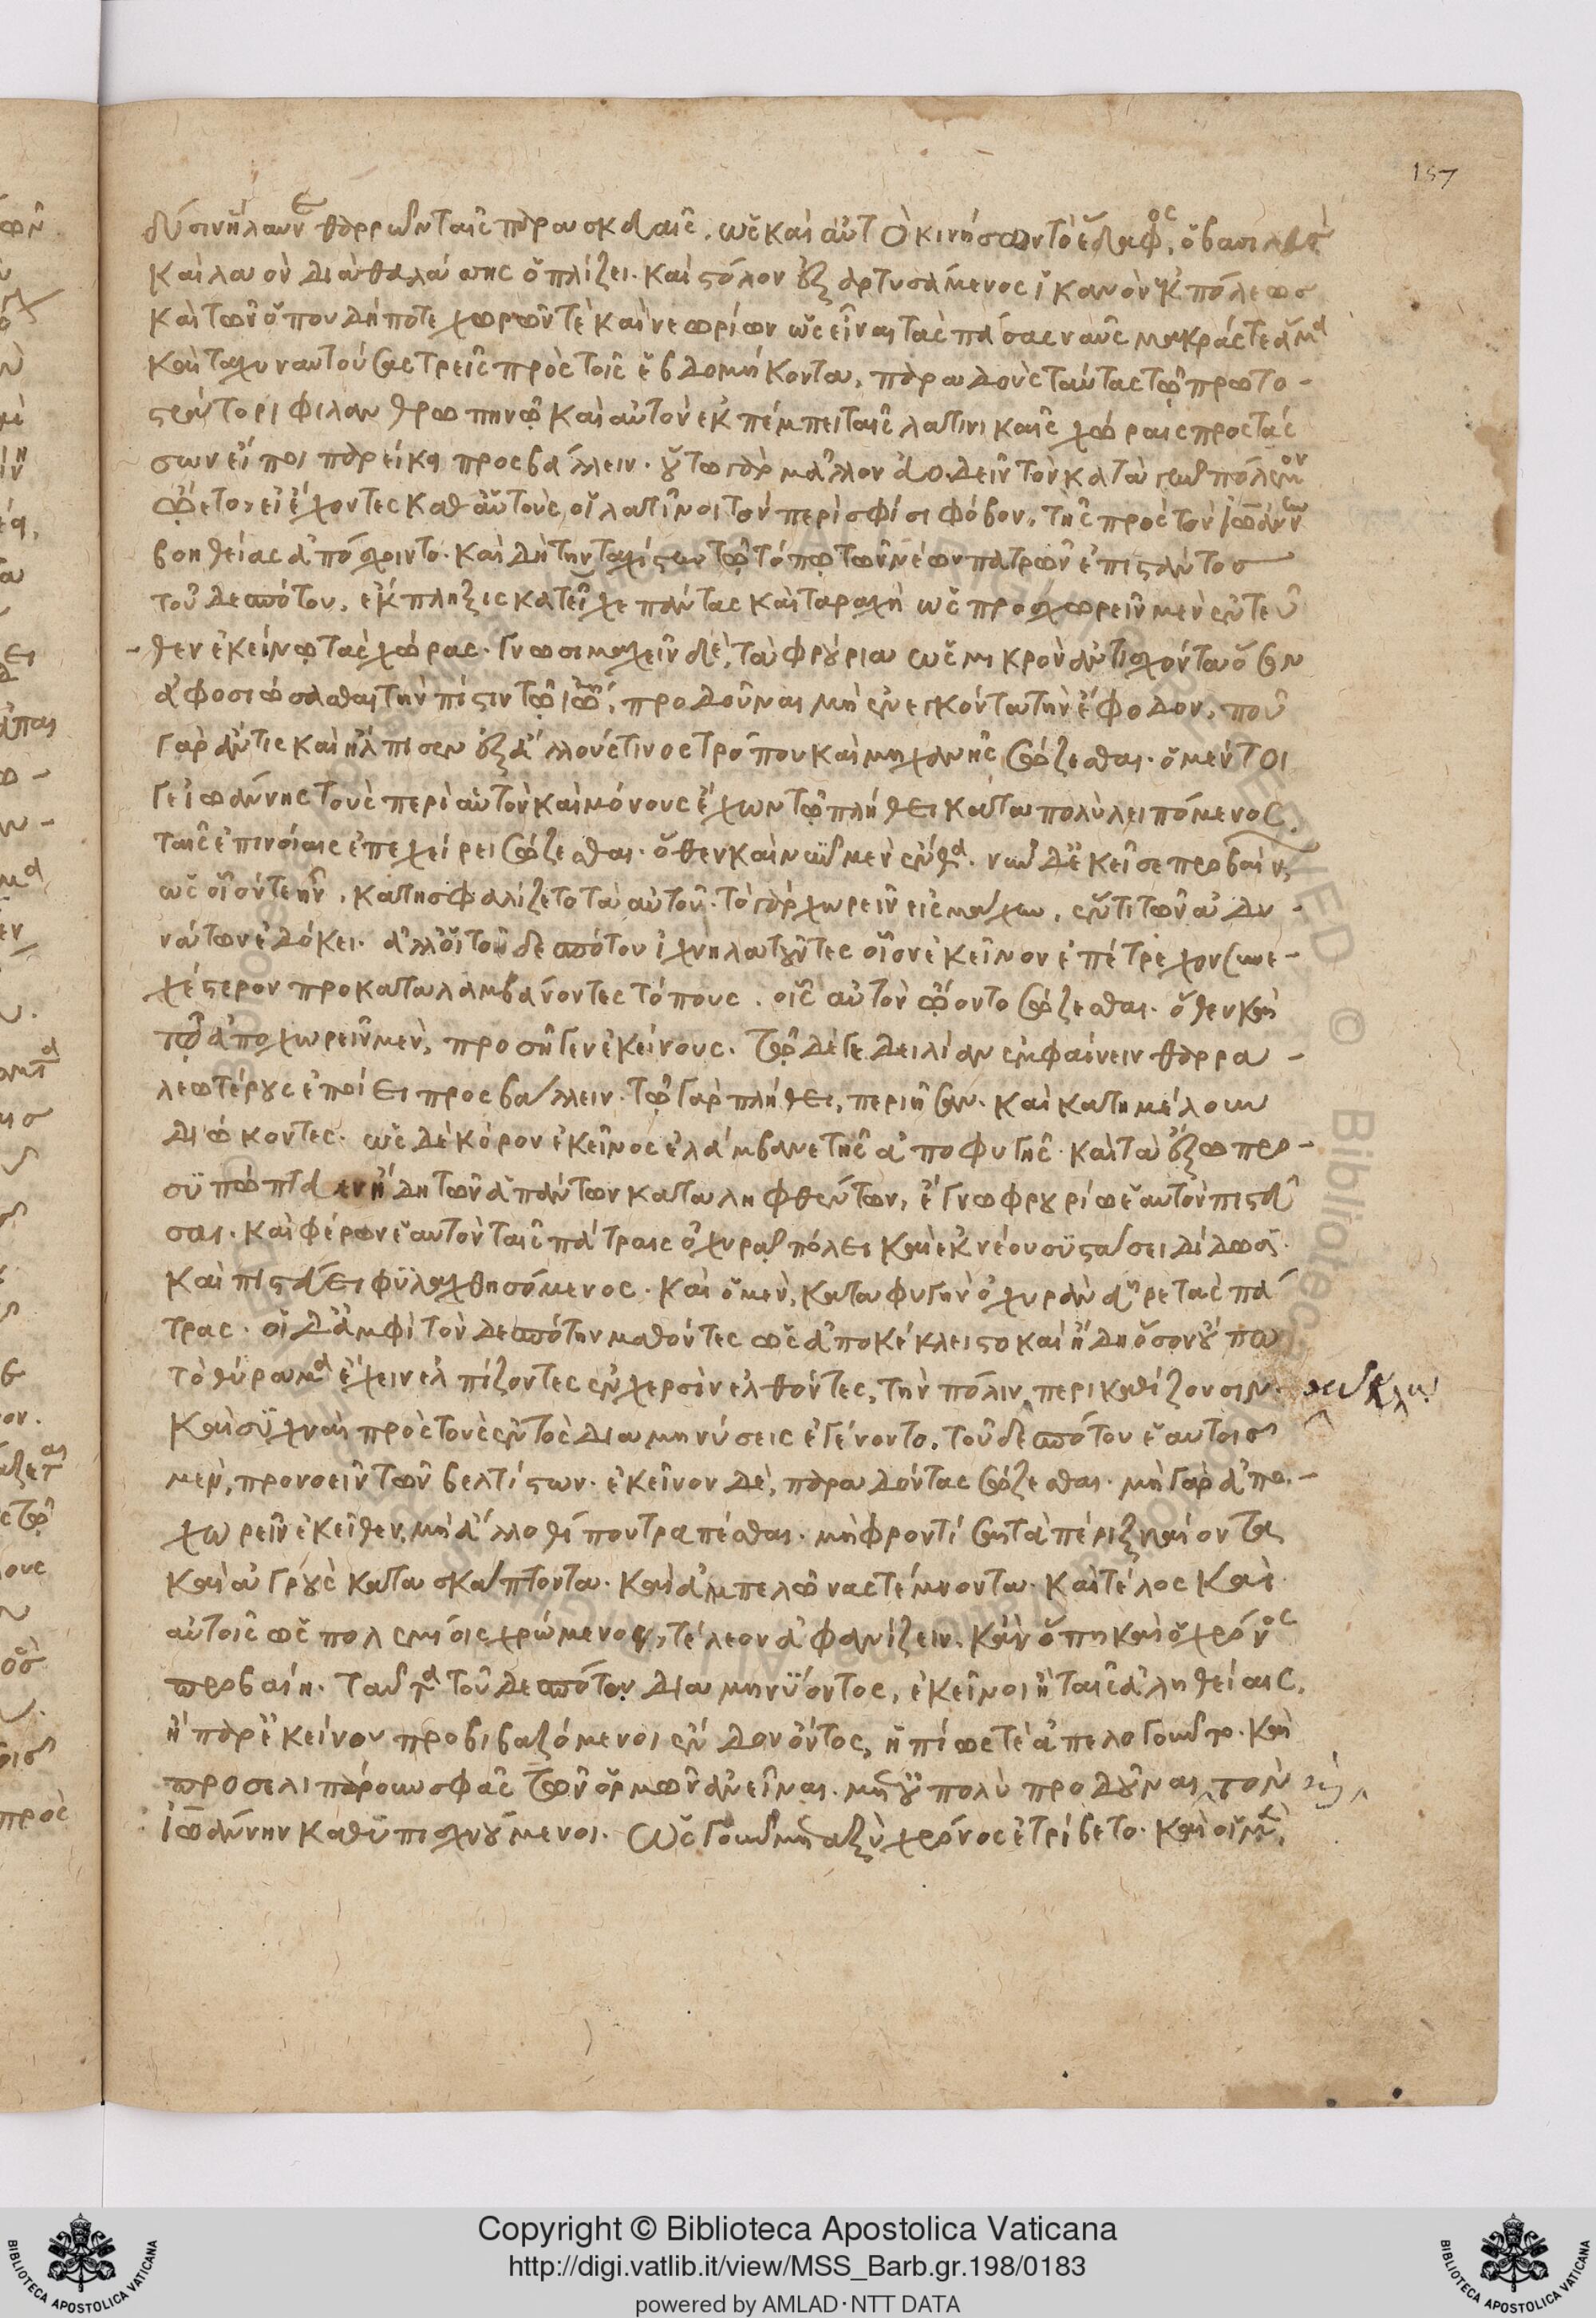 157
δύσιν ἤλαυνε θαρρῶν ταῖς παρασκευαῖς. ὡς καὶ αὐτὸ κινήσων τὸ ἔδαφος, ὁ βασιλεὺς
καὶ λαὸν διὰ θαλάσσης ὁπλίζει. καὶ στόλον ἐξαρτυσάμενος ἱκανὸν ἐκ πόλεως
καὶ τῶν ὅπου δήποτε χωρῶν τὲ καὶ νεωρίων ὡς εἶναι τὰς πάσας ναῦς μακράς τε ἅμα
καὶ ταχυναυτούσας τρεῖς πρὸς τοῖς ἑβδομήκοντα, παραδοὺς ταύτας τῷ πρωτο-
στράτορι φιλανθρωπηνῷ καὶ αὐτὸν ἐκπέμπει ταῖς λατινικαῖς χώραις προστάσ
σων εἴ ποι παρείκει προσβάλλειν. οὕτω γὰρ μᾶλλον ἀοδεῖν τὸν κατὰ γῆν πόλεμον
ᾤετο, εἰ ἔχοντες καθ' αὑτοὺς οἱ λατῖνοι τὸν περὶ σφίσι φόβον, τῆς πρὸς τὸν ἰωάννην
βοηθείας ἀπόσχοιντο. καὶ δὴ τὴν ταχίστην τῷ τόπῳ τῶν νέων πατρῶν ἐπιστάντος
τοῦ δεσπότου, ἔκπληξις κατεῖχε πάντας καὶ ταραχὴ ὡς προσχωρεῖν μὲν ἐντεῦ
θεν ἐκείνῳ τὰς χώρας. γνωσιμαχεῖν δὲ, τὰ φρούρια ὡς μικρὸν ἀντισχόντα ὅσον
ἀφοσιώσασθαι τὴν πίστιν τῷ ἰωάννῃ, προδοῦναι μὴ ἐνεγκόντα τὴν ἔφοδον, ποῦ
γὰρ ἄν τις καὶ ἤλπισεν ἐξ ἄλλου ἔτινος τρόπου καὶ μηχανῆς σώζεσθαι. ὁ μέντοι
γε ἰωάννης τοὺς περὶ αὐτὸν καὶ μόνους ἔχων τῷ πλήθει καταπολὺ λειπόμενος.
ταῖς ἐπινοίαις ἐπεχείρει σώζεσθαι. ὅθεν καὶ νῦν μὲν ἐνθα. νῦν δ' ἐκεῖσε περβαίνων
ὡς οἷόν τε ἦν, κατησφαλίζετο τὰ αὐτοῦ. τὸ γὰρ χωρεῖν εἰς μάχην, ἔν τι τῶν ἀδυ-
νάτων ἐδόκει. ἀλλ' οἱ τοῦ δεσπότου ἰχνηλατοῦντες οἷον ἐκεῖνον ἐπέτρεχον συνε-
χέστερον προκαταλαμβάνοντες τόπους. οἷς αὐτὸν ᾤοντο σώζεσθαι. ὅθεν καὶ
τῷ ἀποχωρεῖν μὲν, προσῆγεν ἐκείνους. τῷ δέ γε δειλίαν ἐμφαίνειν θαρρα-
λεωτέρους ἐποίει προσβάλλειν. τῷ γὰρ πλήθει, περιῆσαν. καὶ κατημέλουν
διώκοντες. ὡς δὲ κόρον ἐκεῖνος ἐλάμβανε τῆς ἀποφυγῆς. καὶ τὰ ἔξω περ-
σϋπώπτα ἐν ἤδη τῶν ἁπάντων καταληφθέντων, ἔγνω φρουρίῳ ἑαυτὸν πιστεῦ
σαι. καὶ φέρων ἑαυτὸν ταῖς πάτραις ὀχυρᾷ πόλει καὶ ἐκ νέου συστάσει δίδωσι.
καὶ πιστεύει φυλαχθησόμενος. καὶ ὁ μὲν, καταφυγὴν ὀχυρὰν εὗρε τὰς πά
τρας. οἱ δ' ἀμφὶ τὸν δεσπότην μαθόντες ὡς ἀποκέκλειστο καὶ ἤδη ὅσον οὔπω
τὸ θύραμα ἔχειν ἐλπίζοντες ἐν χερσὶν ἐλθόντες, τὴν πόλιν περικαθίζουσιν.
καὶ συχναὶ πρὸς τοὺς ἐντὸς διαμηνύσεις ἐγένοντο. τοῦ δεσπότου ἑαυτοῖς
μὲν, προνοεῖν τῶν βελτίστων. ἐκεῖνον δὲ, παραδόντας σώζεσθαι. μὴ γὰρ ἀπο-
χωρεῖν ἐκεῖθεν, μὴ ἄλλοθί που τραπέσθαι. μὴ φροντίσαι τὰ πέριξ καίοντα
καὶ ἀγροὺς κατασκάπτοντα. καὶ ἀμπελῶνας τέμνοντα. καὶ τέλος καὶ
αὐτοῖς ὡς πολεμίοις χρώμενος, τέλεον ἀφανίζειν. κἂν ὅπη καὶ ὁ χρόνος
περβαίη. ταῦτα τοῦ δεσπότου διαμηνύοντος, ἐκεῖνοι ἢ ταῖς ἀληθείαις,
ἢ παρ' ἐκείνου προβιβαζόμενοι ἔνδον ὄντος, ἠπίως τὲ ἀπελογοῦντο. καὶ
προσελιπάρουν σφᾶς τῶν ὁρμῶν ἀνεῖναι. μετ' οὐ πολὺ προδοῦναι τὸν
ἰωάννην καθυπισχνούμενοι. ὡς γοῦν μεταξὺ χρόνος ἐτρίβετο. καὶ οἱ μὲν,
Copyright © Biblioteca Apostolica Vaticana
http://digi.vatlib.it/view/MSS_Barb.gr.198/0183
powered by AMLAD·NTT DATA
BIBLIOTECA APOSTOLICA VATICANA
BIBLIOTECA APOSTOLICA VATICANA